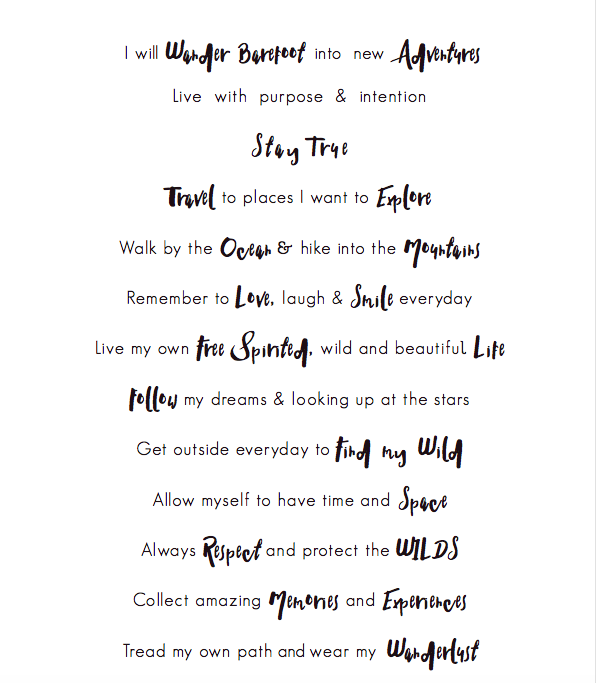 I will Wander Barefoot into new Adventures
Live with purpose & intention
Stay True
Travel to places I want to Explore
Walk by the Ocean & hike into the Mountains
Remember to Love, laugh & Smile everyday
Live my own free Spirited, wild and beautiful Life
Follow my dreams & looking up at the stars
Get outside everyday to find my Wild
Allow myself to have time and Space
Always Respect and protect the WILDS
Collect amazing Memories and Experiences
Tread my own path and wear my Wanderlust